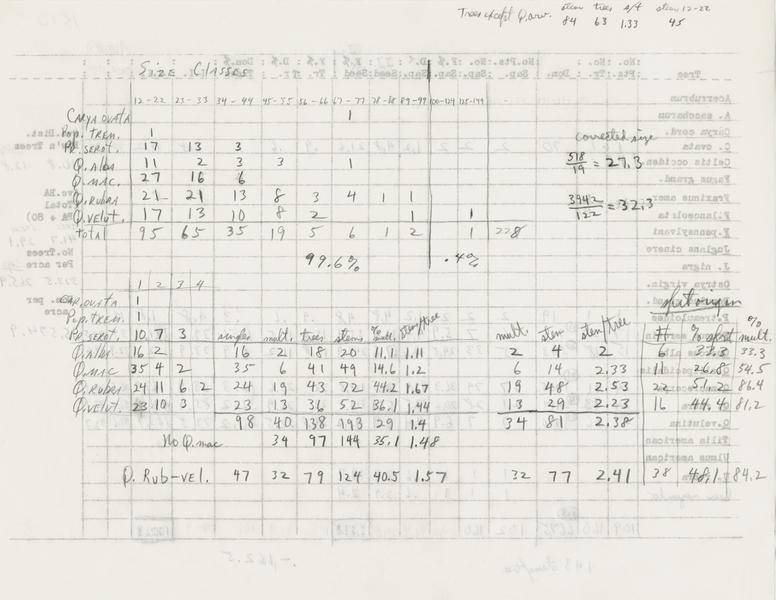 stem trees s/t stem 12-22
Trees except Q. Mac. 84 63 1.33 45
SIZE CLASSES
12-22 23-33 34-44 45-55 56-66 67-77 78-88 89-99 100-124 125-149
CARYA OVATA 1
Pop. TREM. 1
PR. SEROT. 17 13 3
Q. AlbA 11 2 3 3 1
Q. MAC. 27 16 6
Q. RUBRA 21 21 13 8 3 4 1 1
Q. VELUT. 17 13 10 8 2 1 1
Total 95 65 35 19 5 6 1 2 1 228
99.6% .4%
corrected size
518/19 = 27.3
3942/122 = 32.3
1 2 3 4
CAR. OVATA 1
Pop. TREM. 1
PR. SEROT. 10 7 3 singles mult. trees stems % mult. stem/tree mult. stem stem/tree
sprt origin
# % sprt % mult.
Q. AlbA 16 2 16 2 18 20 11.1 1.11 2 4 2 6 33.3 33.3
Q. MAC 35 4 2 35 6 41 49 14.6 1.2 6 14 2.33 11 26.8 54.5
Q. RUBRA 24 11 6 2 24 19 43 72 44.2 1.67 19 48 2.53 22 51.2 86.4
Q. VELUT. 23 10 3 23 13 36 52 36.1 1.44 13 29 2.23 16 44.4 81.2
98 40 138 193 29 1.4 34 81 2.38
No Q. mac 34 97 144 35.1 1.48
Q. Rub-vel. 47 32 79 124 40.5 1.57 32 77 2.41 38 48.1 84.2